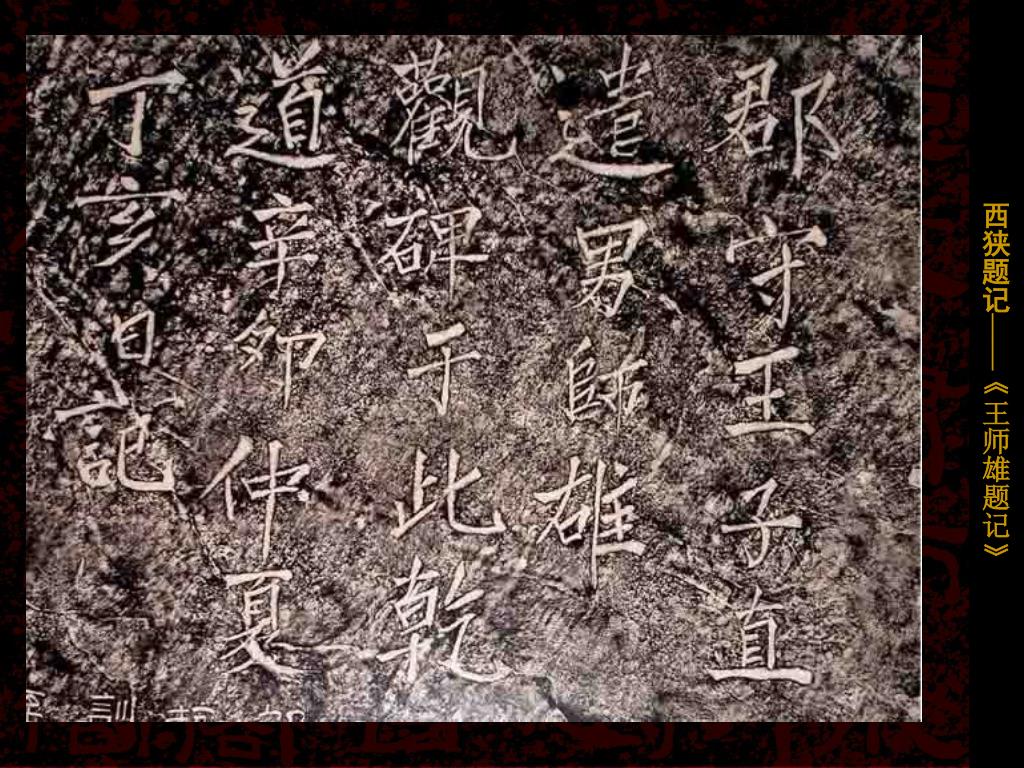 郡守王子直
遣男師雄
觀碑于此乾
道辛卯仲夏
丁亥日記
訓
西狭题记——《王师雄题记》